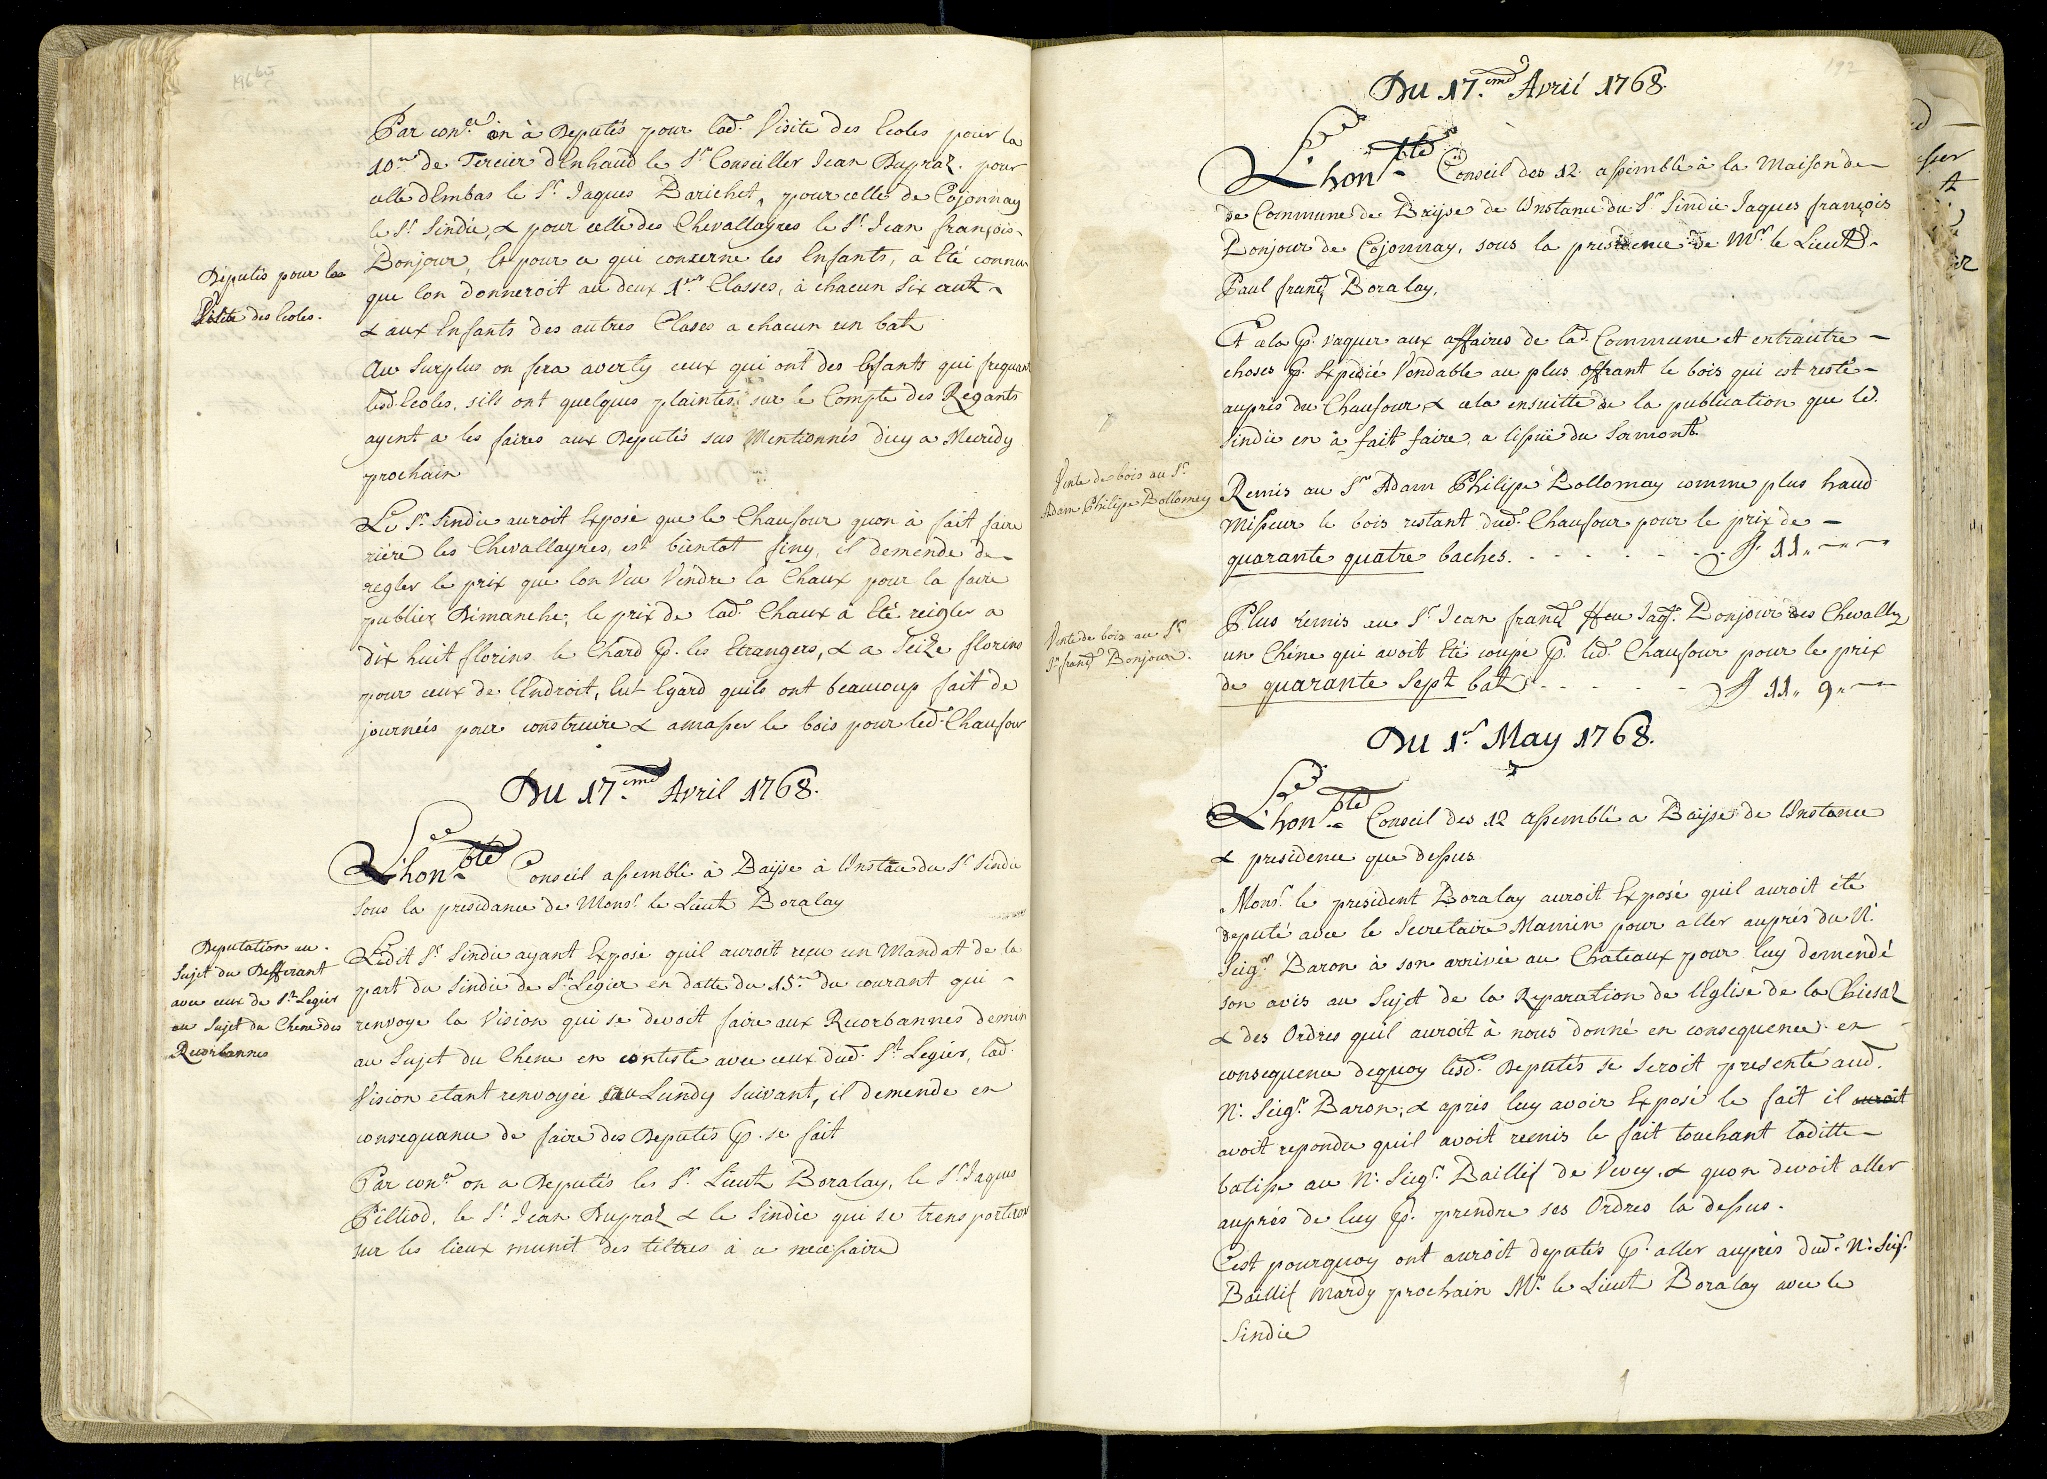 196 bis
Par con.ce on à Deputés pour lad. Visite des Ecoles pour la
10.me de Tercier d'Enhaud le Sr. Conseiller Jean Dupraz. pour
celle d'Embas le Sr. Jaques Barichet, pour celle de Cojonnay
le Sr. Sindic, & pour celle des Chevallayres le Sr. Jean françois
Bonjour, Et pour ce qui conserne les Enfants, à Eté connu
que lon donneroit au deux 1.res Classes, à chacun Six crut
& aux Enfants des autres Clases a chacun un batz
Députés pour les
Visite des Ecoles.
Au Surplus on fera averty ceux qui ont des Enfants qui frequent
lesd. Ecoles, sils ont quelques plaintes sur le Compte des Regants
ayent a les faires aux Deputés sus Mentionnés dicy a Mecredy
prochain
Le Sr. Sindic auroit Exposé que le Chaufour quon à fait faire
riére les Chevallayres, est bientot finy, il demende de
regler le prix que lon Veu Vendre la Chaux pour la faire
publier Dimanche; le prix de lad. Chaux à Eté reigler a
dix huit florins le Chard p. les Etrangers, & a Seize florins
pour ceux de l'Endroit, Eut Egard quils ont beaucoup fait de
journeés pour construire & amasser le bois pour led. Chaufour
Du 17.eme Avril 1768.
L'hon.ble Conseil assemblé à Baÿse à l'Instãce du Sr. Sindic
sous la presidance de Monsr. le Lieut. Doralay
Deputation au
Sujet du Defferant
avec ceux de St. Legier
au Sujet du Chene des
Ruorbannes
Ledit Sr. Sindic ayant Exposé quil auroit reçu un Mandat de la
part du Sindic de St. Legier en datte du 15.me du courant qui
renvoye la Vision qui se devoit faire aux Ruorbannes demin
au Sujet du Chene en contiste avec ceux dud. St. Legier, lad.
Vision etant renvoyée au Lundy Suivant, il demende en
consequance de faire des Deputés p. se fait
Par con.ce on a Deputés les Sr. Lieut. Doralay, le Sr. Jaques
Pilliod, le Sr. Jean Dupraz & le Sindic qui se transporteron
sur les lieux munit des tiltres à ce necessaire
192
Du 17.eme Avril 1768.
L'hon.ble Conseil des 12. assemblé à la Maison de
de Commune de Brijse de l'Instance du Sr. Sindic Jaques françois
Bonjour de Cojonnay, sous la presidence de Mr. le Lieut.
Paul franç. Doralay,
Et cela p. vaquer aux affaires de lad. Commune et entrautre
choses p. Expedié Vendable au plus offrant le bois qui est resté
aupres du Chaufour & cela ensuitte de la publication que led.
Sindic en à fait faire, a lissüe du Sermont.
Vente de bois au Sr.
Adam Philipe Dollomey
Remis au Sr. Adam Philipe Dollomay comme plus haud
misseur le bois restant dud. Chaufour pour le prix de
quarante quatre baches. - - - - - - - f 11,, - -
Vente de bois au Sr.
Jn. franç. Bonjour.
Plus rémis au Sr. Jean franç. ffeu Jaq. Bonjour des Chevallz
un Chéne qui avoit Eté coupé p. led. Chaufour pour le prix
de quarante Sept batz - - - - - f 11,, 9,, -
Du 1.r May 1768.
L'hon.ble Conseil des 12 assemblé a Baijse de l'Instance
& presidence que dessus
Monsr. le president Doralay auroit Exposé quil auroit été
deputé avec le Secretaire Mamin pour aller auprés du N.
Seigr. Baron à son arrivée au Chateaux pour luy demendé
son avis au Sujet de la Reparation de l'Eglise de la Chiesaz
& des Ordres quil auroit à nous donné en consequence en
consequence dequoy lesd. Deputés se seroit presenté aud.
N. Seigr. Baron, & apris luy avoir Exposé le fait il auroit
avoit repondu quil avoit remis le fait touchant laditte
batisse au N. Seigr. Baillif de Vevey, & quon devoit aller
auprés de luy p. prendre ses Ordres la dessus.
Cest pourquoy ont auroit deputés p. aller auprès dud. N. Seigr.
Baillif Mardy prochain Mr. le Lieut Doralay avec le
Sindic